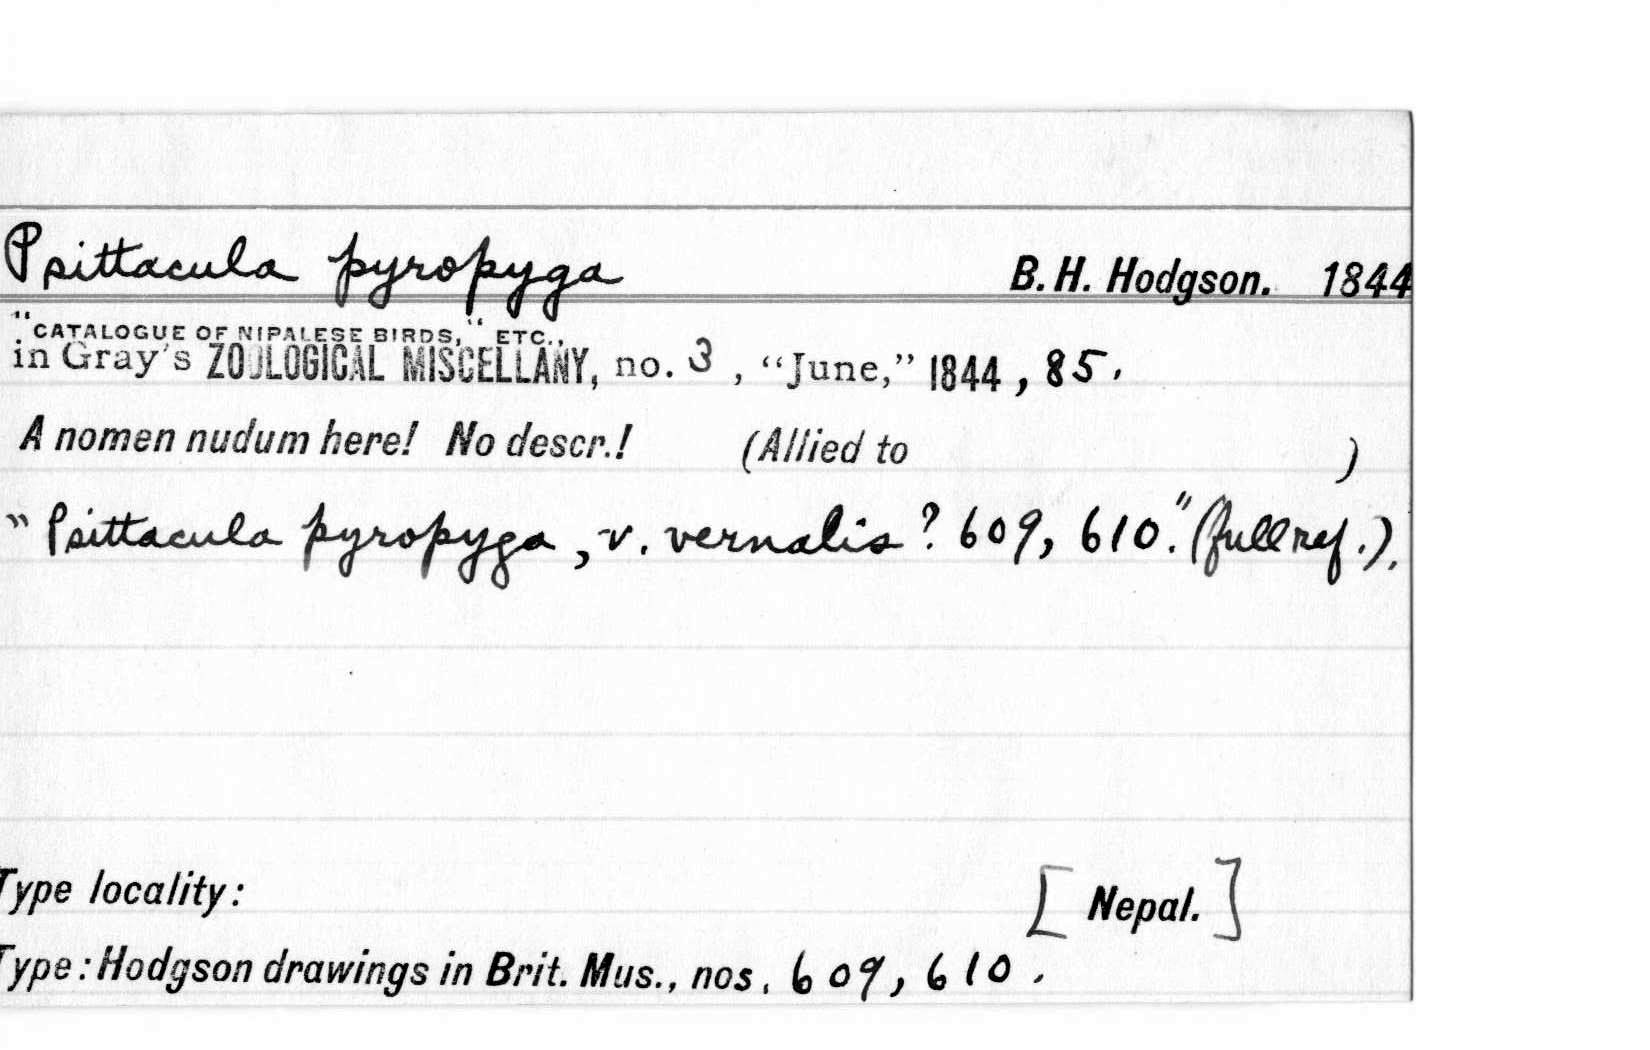 Psittacula pyropyga B. H. Hodgson. 1844
"CATALOGUE OF NIPALESE BIRDS," ETC.,
in Gray's ZOOLOGICAL MISCELLANY, no. 3, "June," 1844, 85.
A nomen nudum here! No descr.! (Allied to )
"Psittacula pyropyga, v. vernalis? 609, 610." (full ref.).
Type locality: [Nepal.]
Type: Hodgson drawings in Brit. Mus., nos. 609, 610.